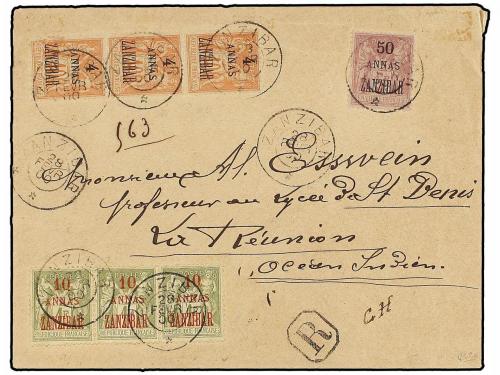 4 ANNAS ZANZIBAR 4 ANNAS ZANZIBAR 4 ANNAS ZANZIBAR
50 ANNAS ZANZIBAR
ZANZIBAR
563
ZANZIBAR 28
ZANZIBAR 28
Monsieur Al. Esswein
professeur au Lycée de St Denis
La Réunion
Océan Indien.
10 ANNAS ZANZIBAR 10 ANNAS ZANZIBAR 10 ANNAS ZANZIBAR
REPUBLIQUE FRANCAISE
ZANZIBAR 28 FEVR
R